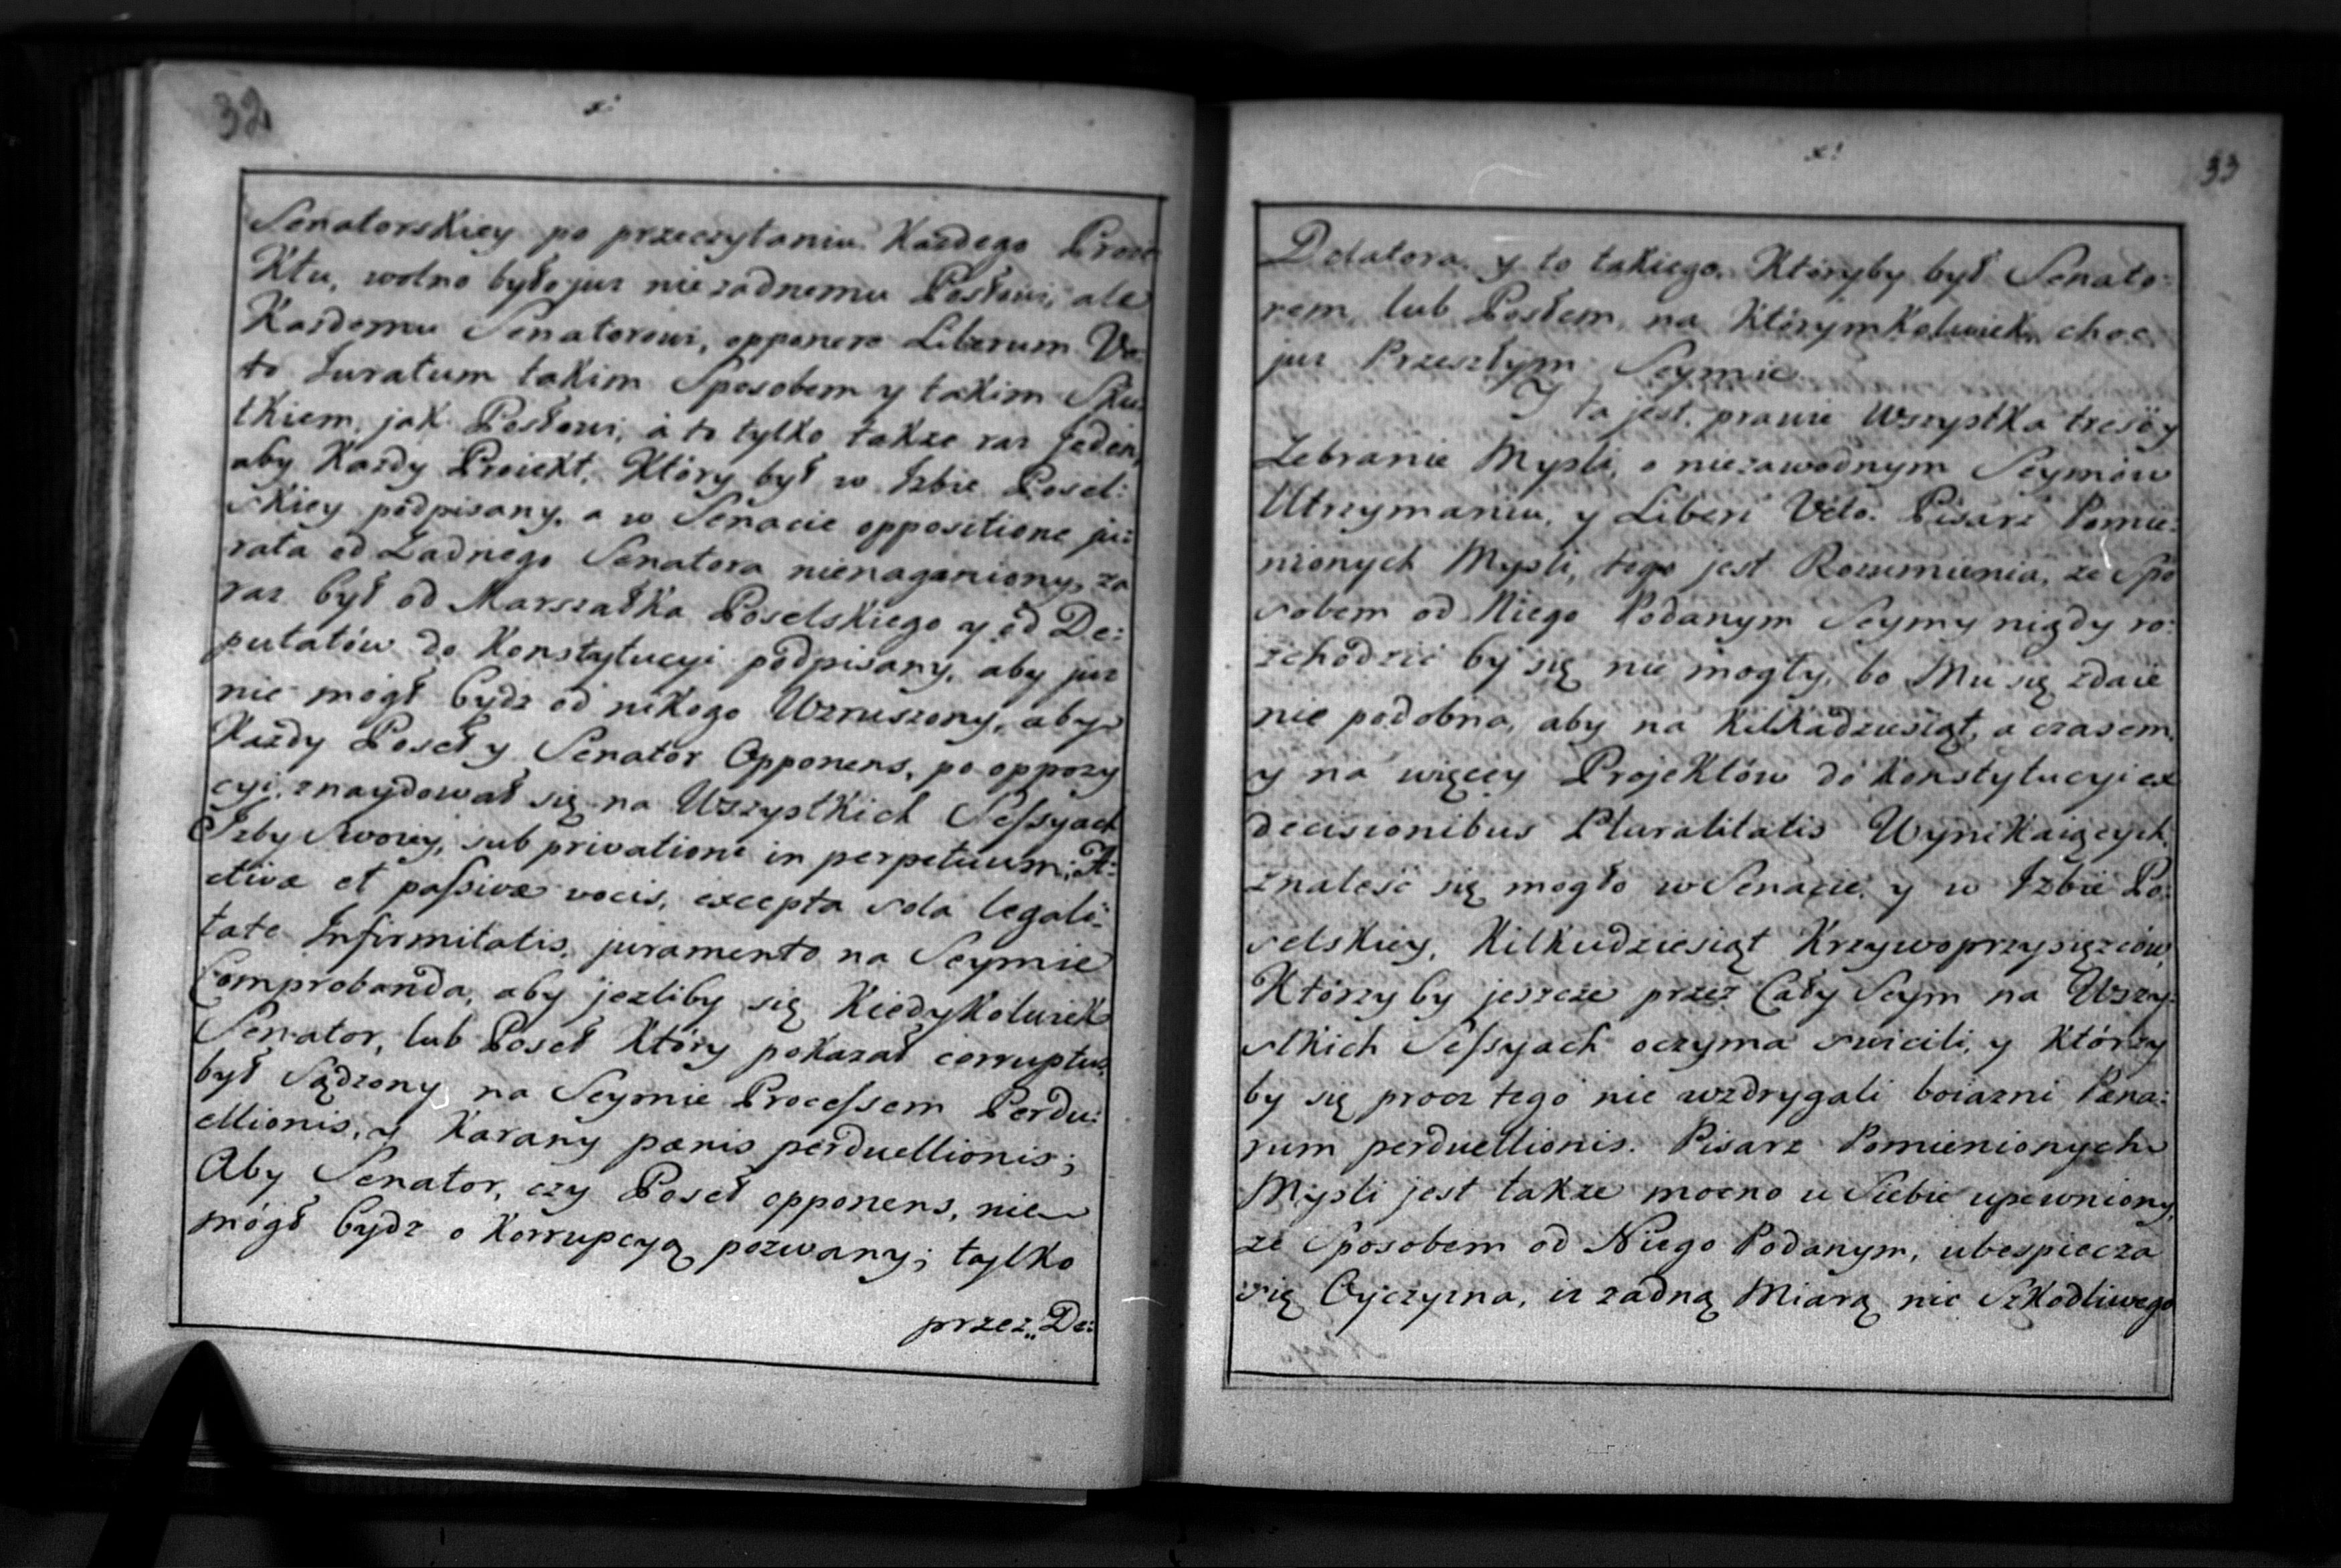 32
x!
Senatorskiey po przeczytaniu Każdego Proie
Ktu, wolno było juz nie zadnemu Posłowi, ale
Kazdemu Senatorowi, opponere Liberum Ve:
to Juratum takim Sposobem y takim Sku:
tkiem, jak Posłowi, à to tylko takze raz jeden,
aby Kazdy Proiekt, Który był w Izbie Posel:
skiey podpisany, a w Senacie oppositione ju:
rata od Zadnego Senatora nienaganiony, za
raz był od Marszałka Poselskiego y od De:
putatów do Konstytucyi podpisany, aby juz
nie mógł bydz od nikogo Wzruszony, aby
Kazdy Poseł y Senator Opponens, po oppozy
cyi, znaydował się na Wszystkich Sessyach
Izby Swoiey, sub privatione in perpetuum; A:
ctivæ et passivæ vocis, excepta sola legali:
tate Infirmitatis, juramento na Seymie
Comprobanda, aby jezliby się Kiedykolwiek
Senator, lub Poseł Który pokazał corruptus,
był Sądzony na Seymie Processem Perdu:
ellionis, y Karany pænis perduellionis;
Aby Senator, czy Poseł opponens, nie
mógł bydz o Korrupcyą pozwany; tylko
przez,, De:
x!
33
Delatora y to takiego, Któryby był Senato:
rem, lub Posłem, na Którymkolwiek, choc
juz Przeszłym Seymie.
Y ta jest prawie Wszystka tresc y
Zebranie Mysli, o niezawodnym Seymów
Utrzymaniu, y Liberi Veto. Pisarz Pomie:
nionych Mysli, tego jest Rozumienia, ze Spo
sobem od Niego Podanym Seymy nigdy ro:
zchodzić by się nie mogły, bo Mu się zdaie
nie podobna, aby na Kilkadziesiąt, a czasem
y na więcey Projektów do Konstytucyi ex
decisionibus Pluralitatis Wynikaiących,
znalesć się mogło w Senacie, y w Izbie Po:
selskiey, Kilkudziesiąt Krzywoprzysięzców,
Którzy by jeszcze przez Cały Seym na Wszy:
stkich Sessyach oczyma swicili, y Którzy
by się procz tego nie wzdrygali boiazni Pæna:
rum perduellionis. Pisarz Pomienionych
Mysli jest takze mocno u Siebie upewniony,
ze Sposobem od Niego Podanym, ubespiecza
się Oyczyzna, iz zadną Miarą nic Szkodliwego